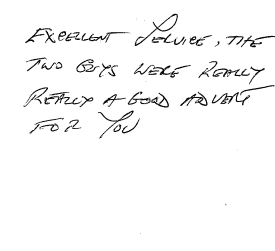 EXCELLENT SERVICE, THE
TWO GUYS WERE REALLY
REALLY A GOOD ADVERT
FOR YOU